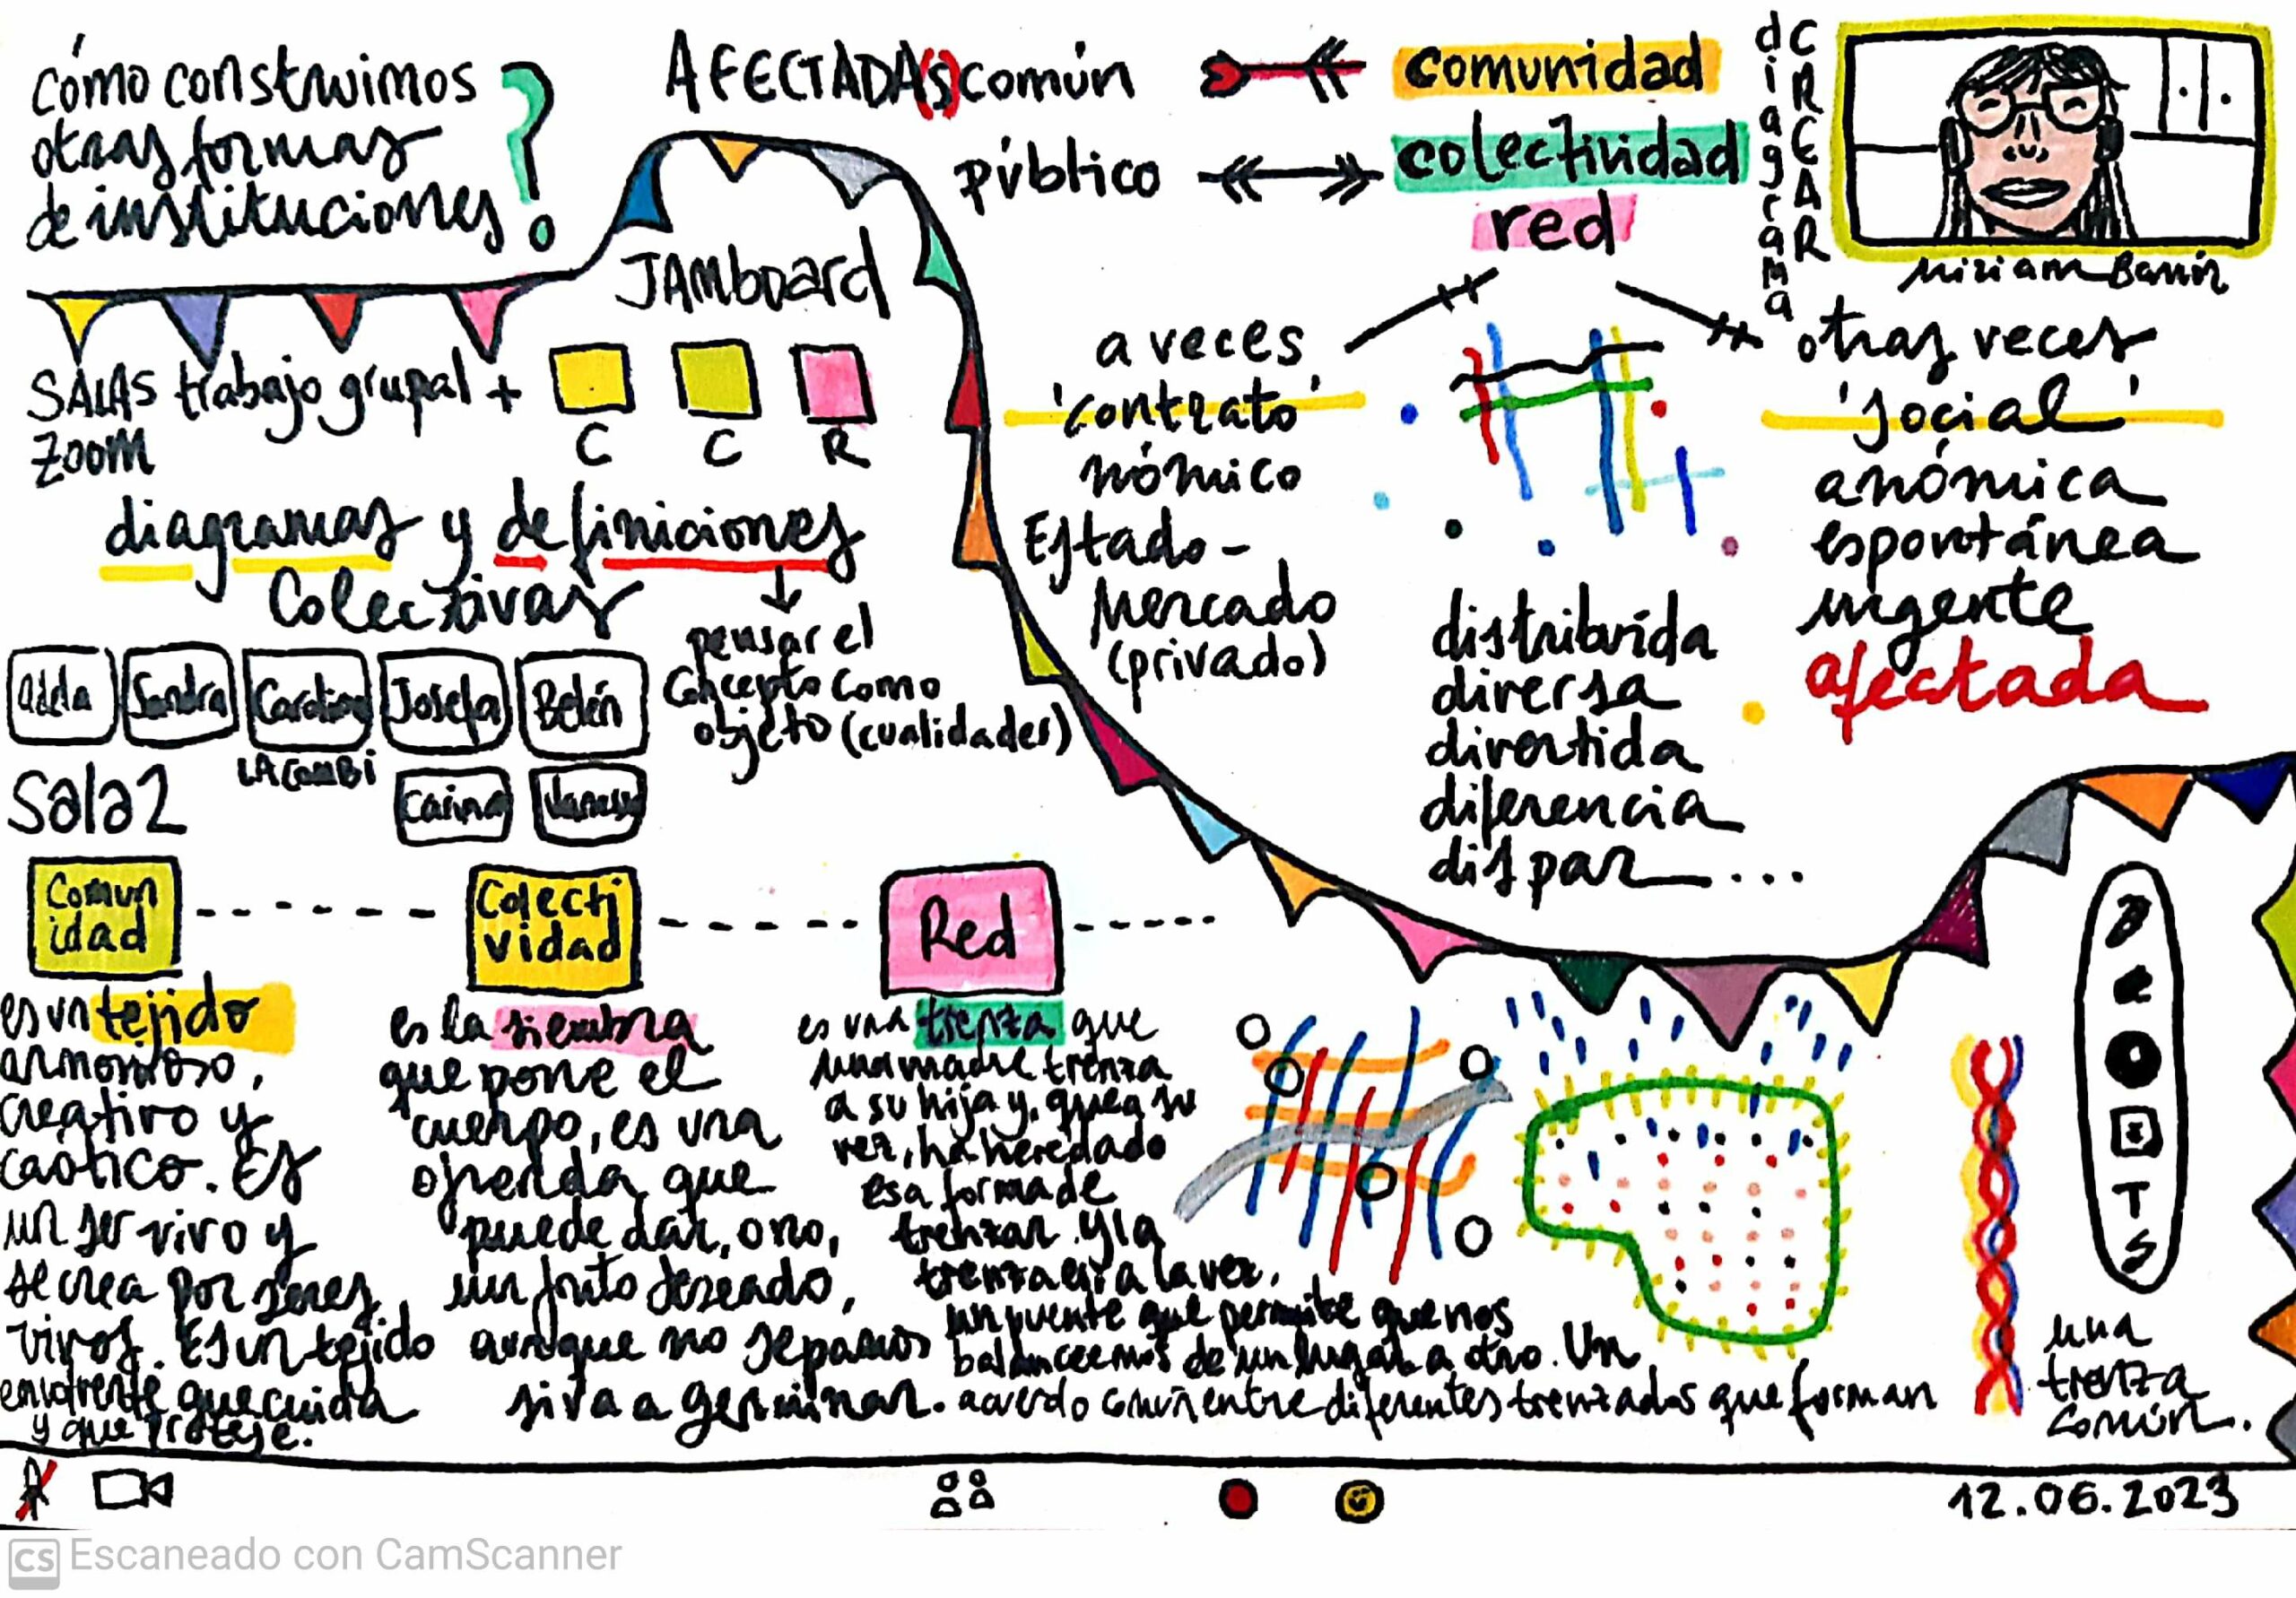 cómo construimos
otras formas
de instituciones ?
AFECTADA(s) común
público
comunidad
colectividad
red
diagrama
CREAR
Miriam
JAMboard
SALAS trabajo grupal +
ZOOM
C C R
diagramas y definiciones
Colectivas
pensar el
concepto como
objeto (cualidades)
Adela Sandra Carolina Josefa Belén
LA COMBI
Sala 2
Carina Vanessa
a veces
'contrato'
nómico
Estado-
Mercado
(privado)
otras veces
'social'
anómica
espontánea
urgente
afectada
distribuída
diversa
divertida
diferencia
dispar...
Comun
idad
es un tejido
armonioso,
creativo y
caótico. Es
un ser vivo y
se crea por seres
vivos. Es un tejido
envolvente que cuida
y que protege.
Colecti
vidad
es la siembra
que pone el
cuerpo, es una
ofrenda que
puede dar, o no,
un fruto deseado,
aunque no sepamos
si va a germinar.
Red
es una trenza que
una madre trenza
a su hija y, que a su
vez, ha heredado
esa forma de
trenzar. Y la
trenza era a la vez,
un puente que permite que nos
balanceemos de un lugar a otro. Un
acuerdo común entre diferentes trenzados que forman
una
trenza
común.
T
12.06.2023
CS Escaneado con CamScanner